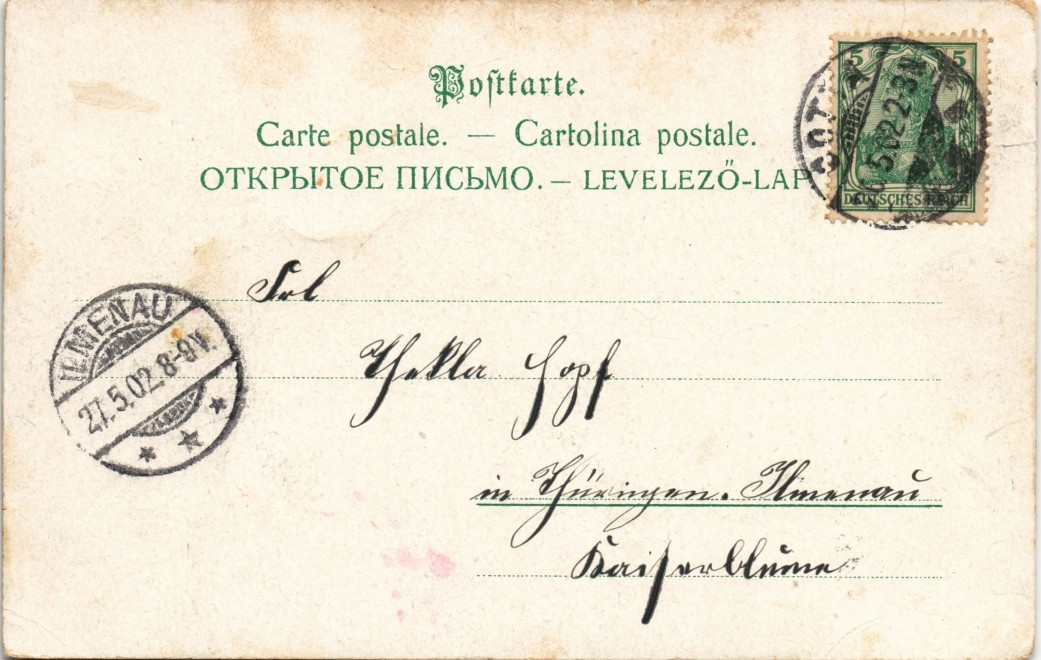 Postkarte.
Carte postale. — Cartolina postale.
ОТКРЫТОЕ ПИСЬМО. — LEVELEZŐ-LAP
5 5
5.02.2-3N
DEUTSCHES REICH
Frl
ILMENAU
27.5.02.8-9V.
Thekla Hopf
in Thüringen. Ilmenau
Kaiserblume